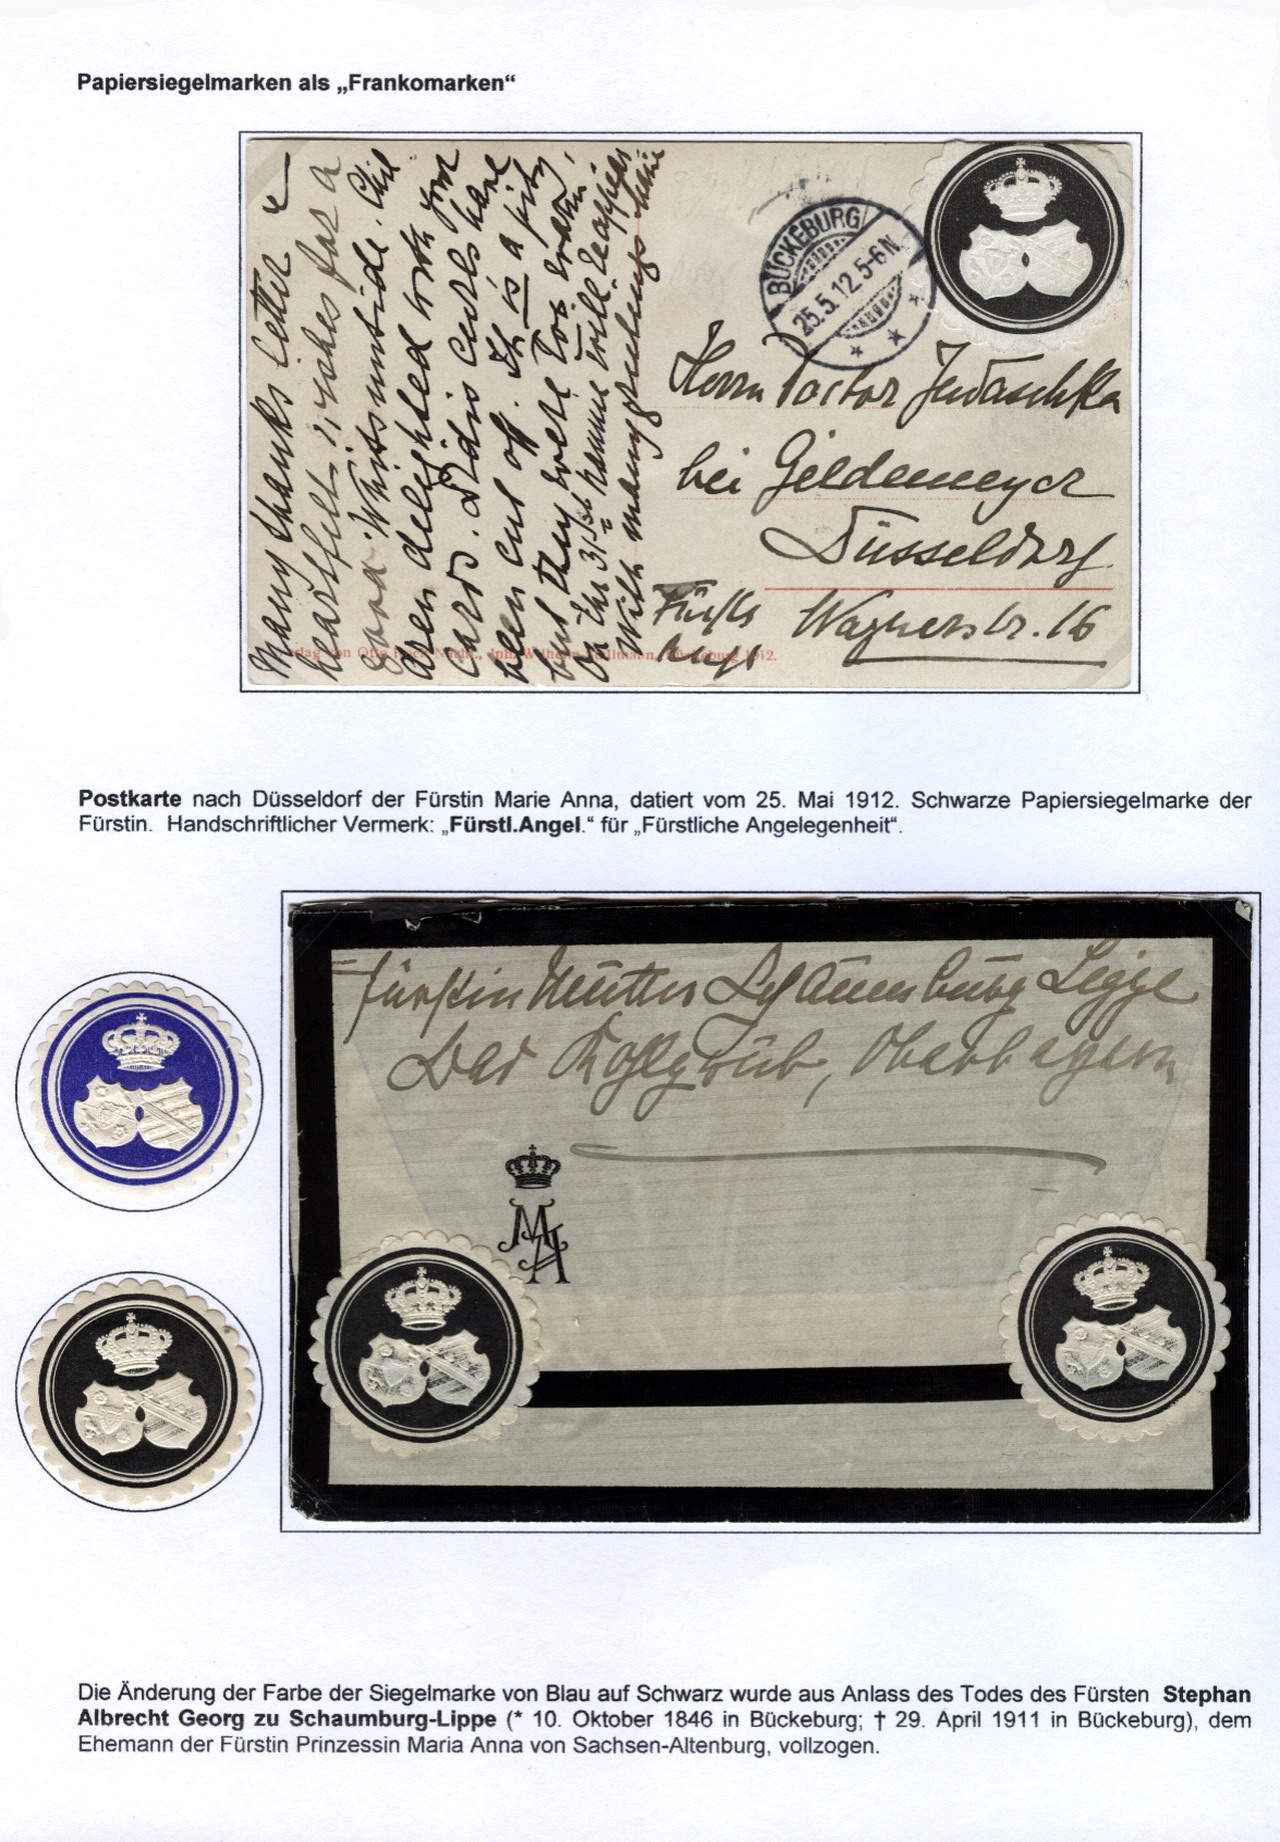 Papiersiegelmarken als „Frankomarken“
Many thanks letter &
heartfelt wishes for a
Good Whitsuntide. Chil
dren delighted with your
cards. curls have
been cut off. It is a pity,
but they were too
On the 31st
With many greetings
BÜCKEBURG
25.5.12.5-6N.
Herrn Doctor
bei Gildemeyer
Düsseldorf
Wagnerstr. 16
Fürstl.
Angel.
Verlag von Otto Nachf., Inh. Wilhelm Bückeburg 1912.
Postkarte nach Düsseldorf der Fürstin Marie Anna, datiert vom 25. Mai 1912. Schwarze Papiersiegelmarke der
Fürstin. Handschriftlicher Vermerk: „Fürstl.Angel.“ für „Fürstliche Angelegenheit“.
Fürstin Mutter Schaumburg Lippe
Bad Kohlgrub, Oberbayern
MA
Die Änderung der Farbe der Siegelmarke von Blau auf Schwarz wurde aus Anlass des Todes des Fürsten Stephan
Albrecht Georg zu Schaumburg-Lippe (* 10. Oktober 1846 in Bückeburg; † 29. April 1911 in Bückeburg), dem
Ehemann der Fürstin Prinzessin Maria Anna von Sachsen-Altenburg, vollzogen.